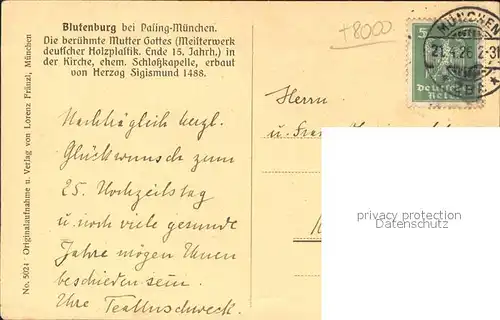 Blutenburg bei Pasing-München.
Die berühmte Mutter Gottes (Meisterwerk
deutscher Holzplastik. Ende 15. Jahrh.) in
der Kirche, ehem. Schloßkapelle, erbaut
von Herzog Sigismund 1488.
No. 5021 - Originalaufnahme u. Verlag von Lorenz Fränzl, München
+8000
MÜNCHEN
5
Deutsches
Reich
Herrn
u.
Nachträglich herzl.
Glückwunsch zum
25. Hochzeitstag
u noch viele gesunde
Jahre mögen Ihnen
beschieden sein.
Ihre
privacy protection
Datenschutz